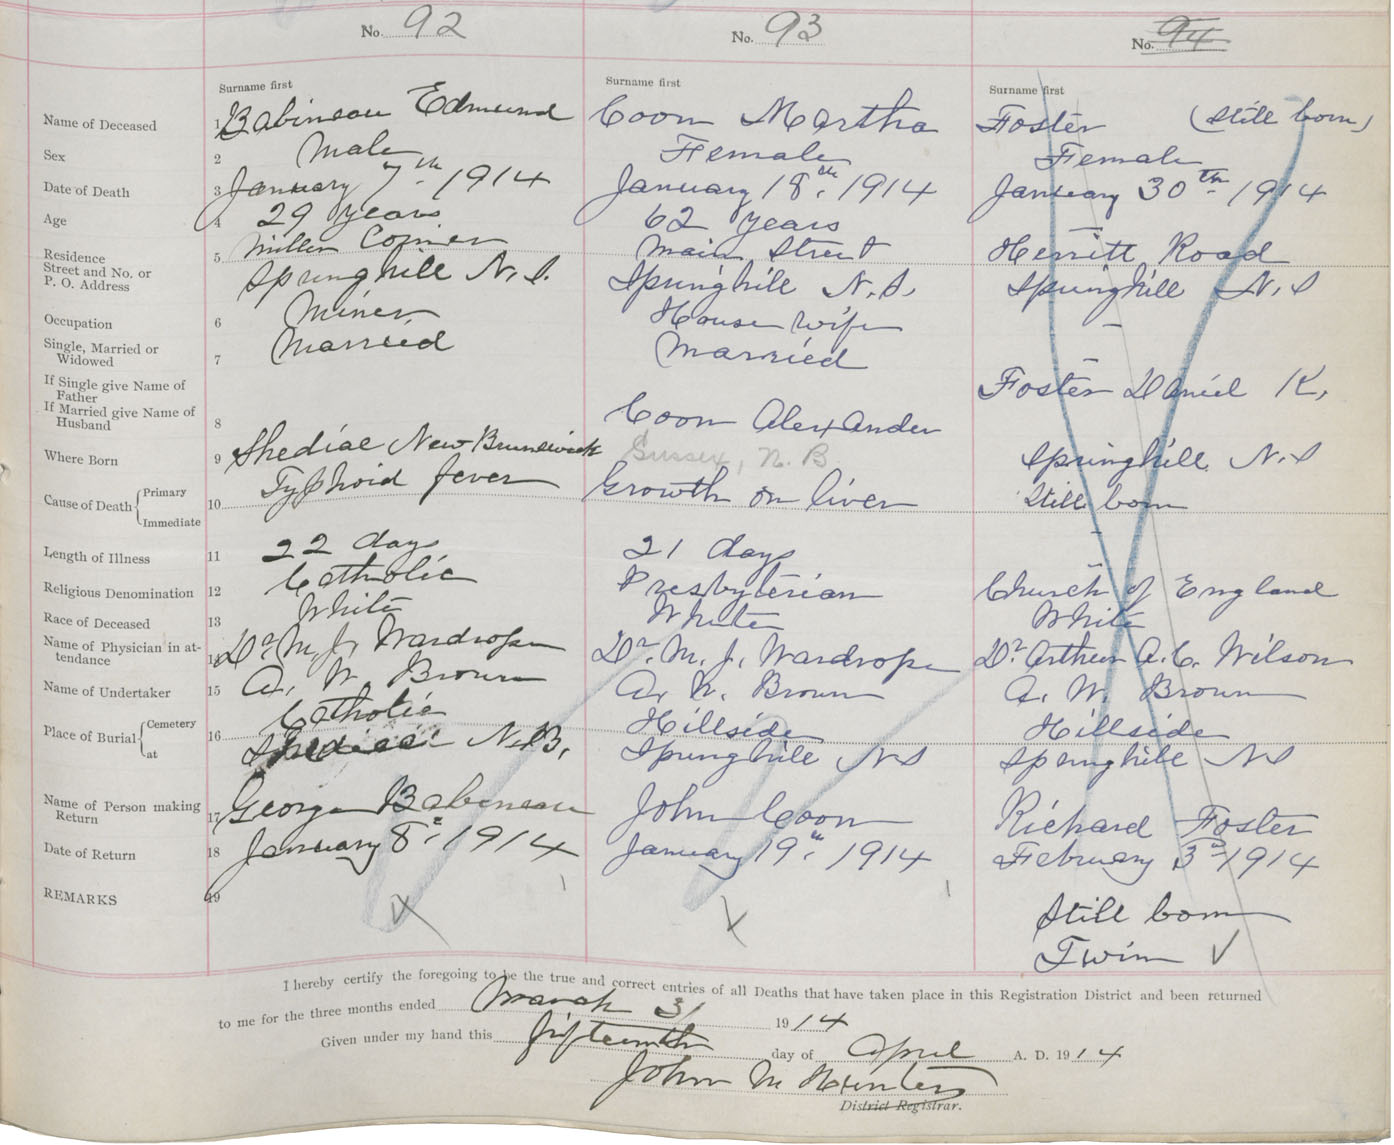 No. 92
No. 93
No. 94
Surname first
Surname first
Surname first
Name of Deceased 1 Babineau Edmund Coon Martha Foster (Still born)
Sex 2 Male Female Female
Date of Death 3 January 7th 1914 January 18th 1914 January 30th 1914
Age 4 29 years 62 years —
Residence Street and No. or P. O. Address 5 Miller Corner Main Street Herritt Road
Springhill N.S. Springhill N.S. Springhill N.S
Occupation 6 Miner House wife —
Single, Married or Widowed 7 Married Married —
If Single give Name of Father Foster Daniel K.
If Married give Name of Husband 8 Coon Alexander
Where Born 9 Shediac New Brunswick Sussex, N.B. Springhill N.S
Cause of Death { Primary Immediate 10 Typhoid fever Growth on liver Still born
Length of Illness 11 22 days 21 days -
Religious Denomination 12 Catholic Presbyterian Church of England
Race of Deceased 13 White White White
Name of Physician in attendance 14 Dr. M. J. Wardrope Dr. M. J. Wardrope Dr. Arthur A. C. Wilson
Name of Undertaker 15 A. W. Brown A. W. Brown A. W. Brown
Place of Burial { Cemetery at 16 Catholic Hillside Hillside
Shediac N.B. Springhill N S Springhill N S
Name of Person making Return 17 George Babineau John Coon Richard Foster
Date of Return 18 January 8th 1914 January 19th 1914 February 3rd 1914
REMARKS 19 Still born
Twin
I hereby certify the foregoing to be the true and correct entries of all Deaths that have taken place in this Registration District and been returned
to me for the three months ended March 31 1914
Given under my hand this fifteenth day of April A. D. 1914
John M Hunter
District Registrar.